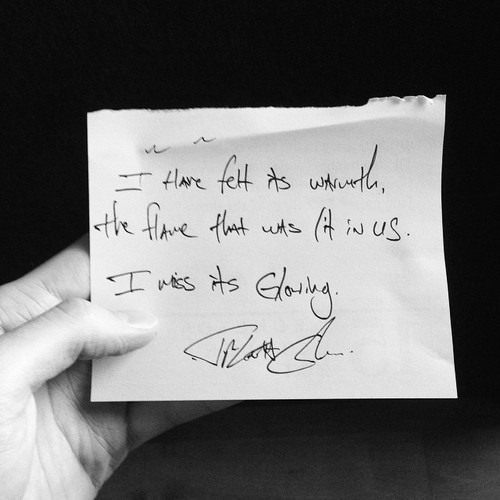 ~ ~
I Have felt its warmth,
the flame that was lit in us.
I miss its Glowing.